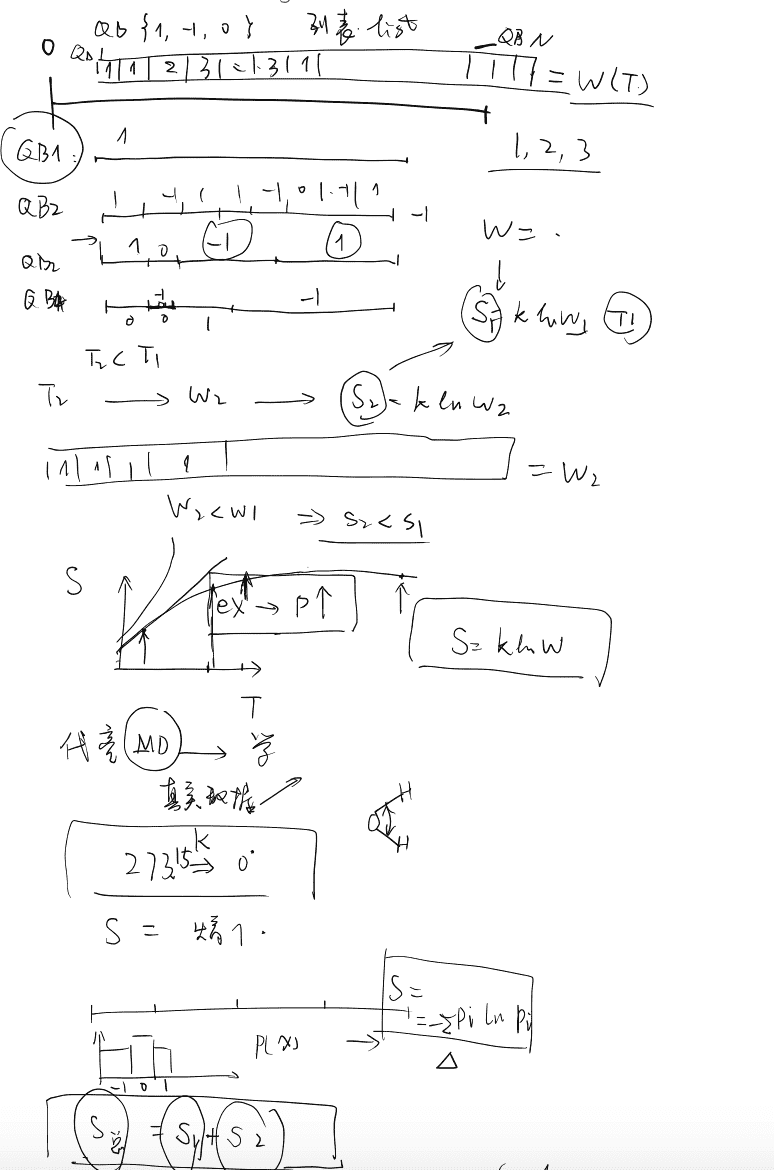 QB {1, -1, 0} 列表 list
0 QB1 QBN
1 1 2 3 1 = W(T)
QB1: 1
1, 2, 3
QB2 1 -1 1 1 -1 0 1 -1 1 -1
W = .
QB2 1 0 -1 1
-1 -1
0 0 1
S1 = k ln W1 T1
T2 < T1
T2 → W2 → S2 = k ln W2
1 1 1 1 = W2
W2 < W1 ⇒ S2 < S1
S
ex → P↑
S = k ln W
T
MD → 学
真实数据
H
O
H
273.15 K ⇒ 0°
S = 熵个.
S =
= -Σ Pi ln Pi
P(x) →
-1 0 1
Δ
S总 = S1 + S2